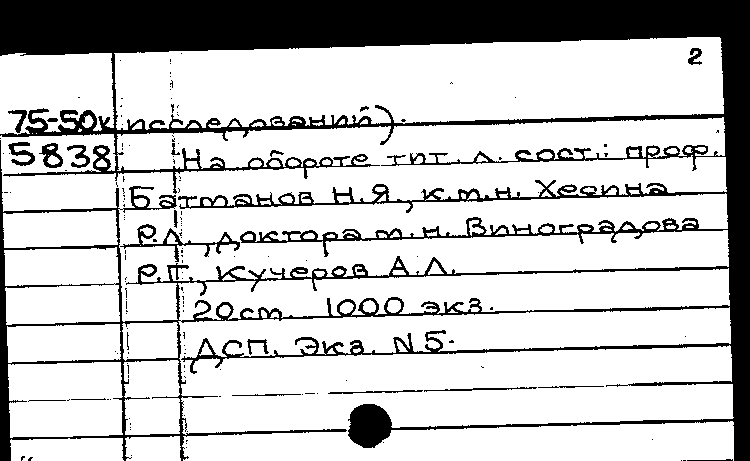 2
75-50к исследований).
5838 На обороте тит. л. сост.: проф.
Батманов Н.Я., к.т.н. Хесина
Р.Л., доктора т.н. Виноградова
Р.Г., Кучеров А.Л.
20 cm. 1000 экз.
ДСП. Экз. N 5.